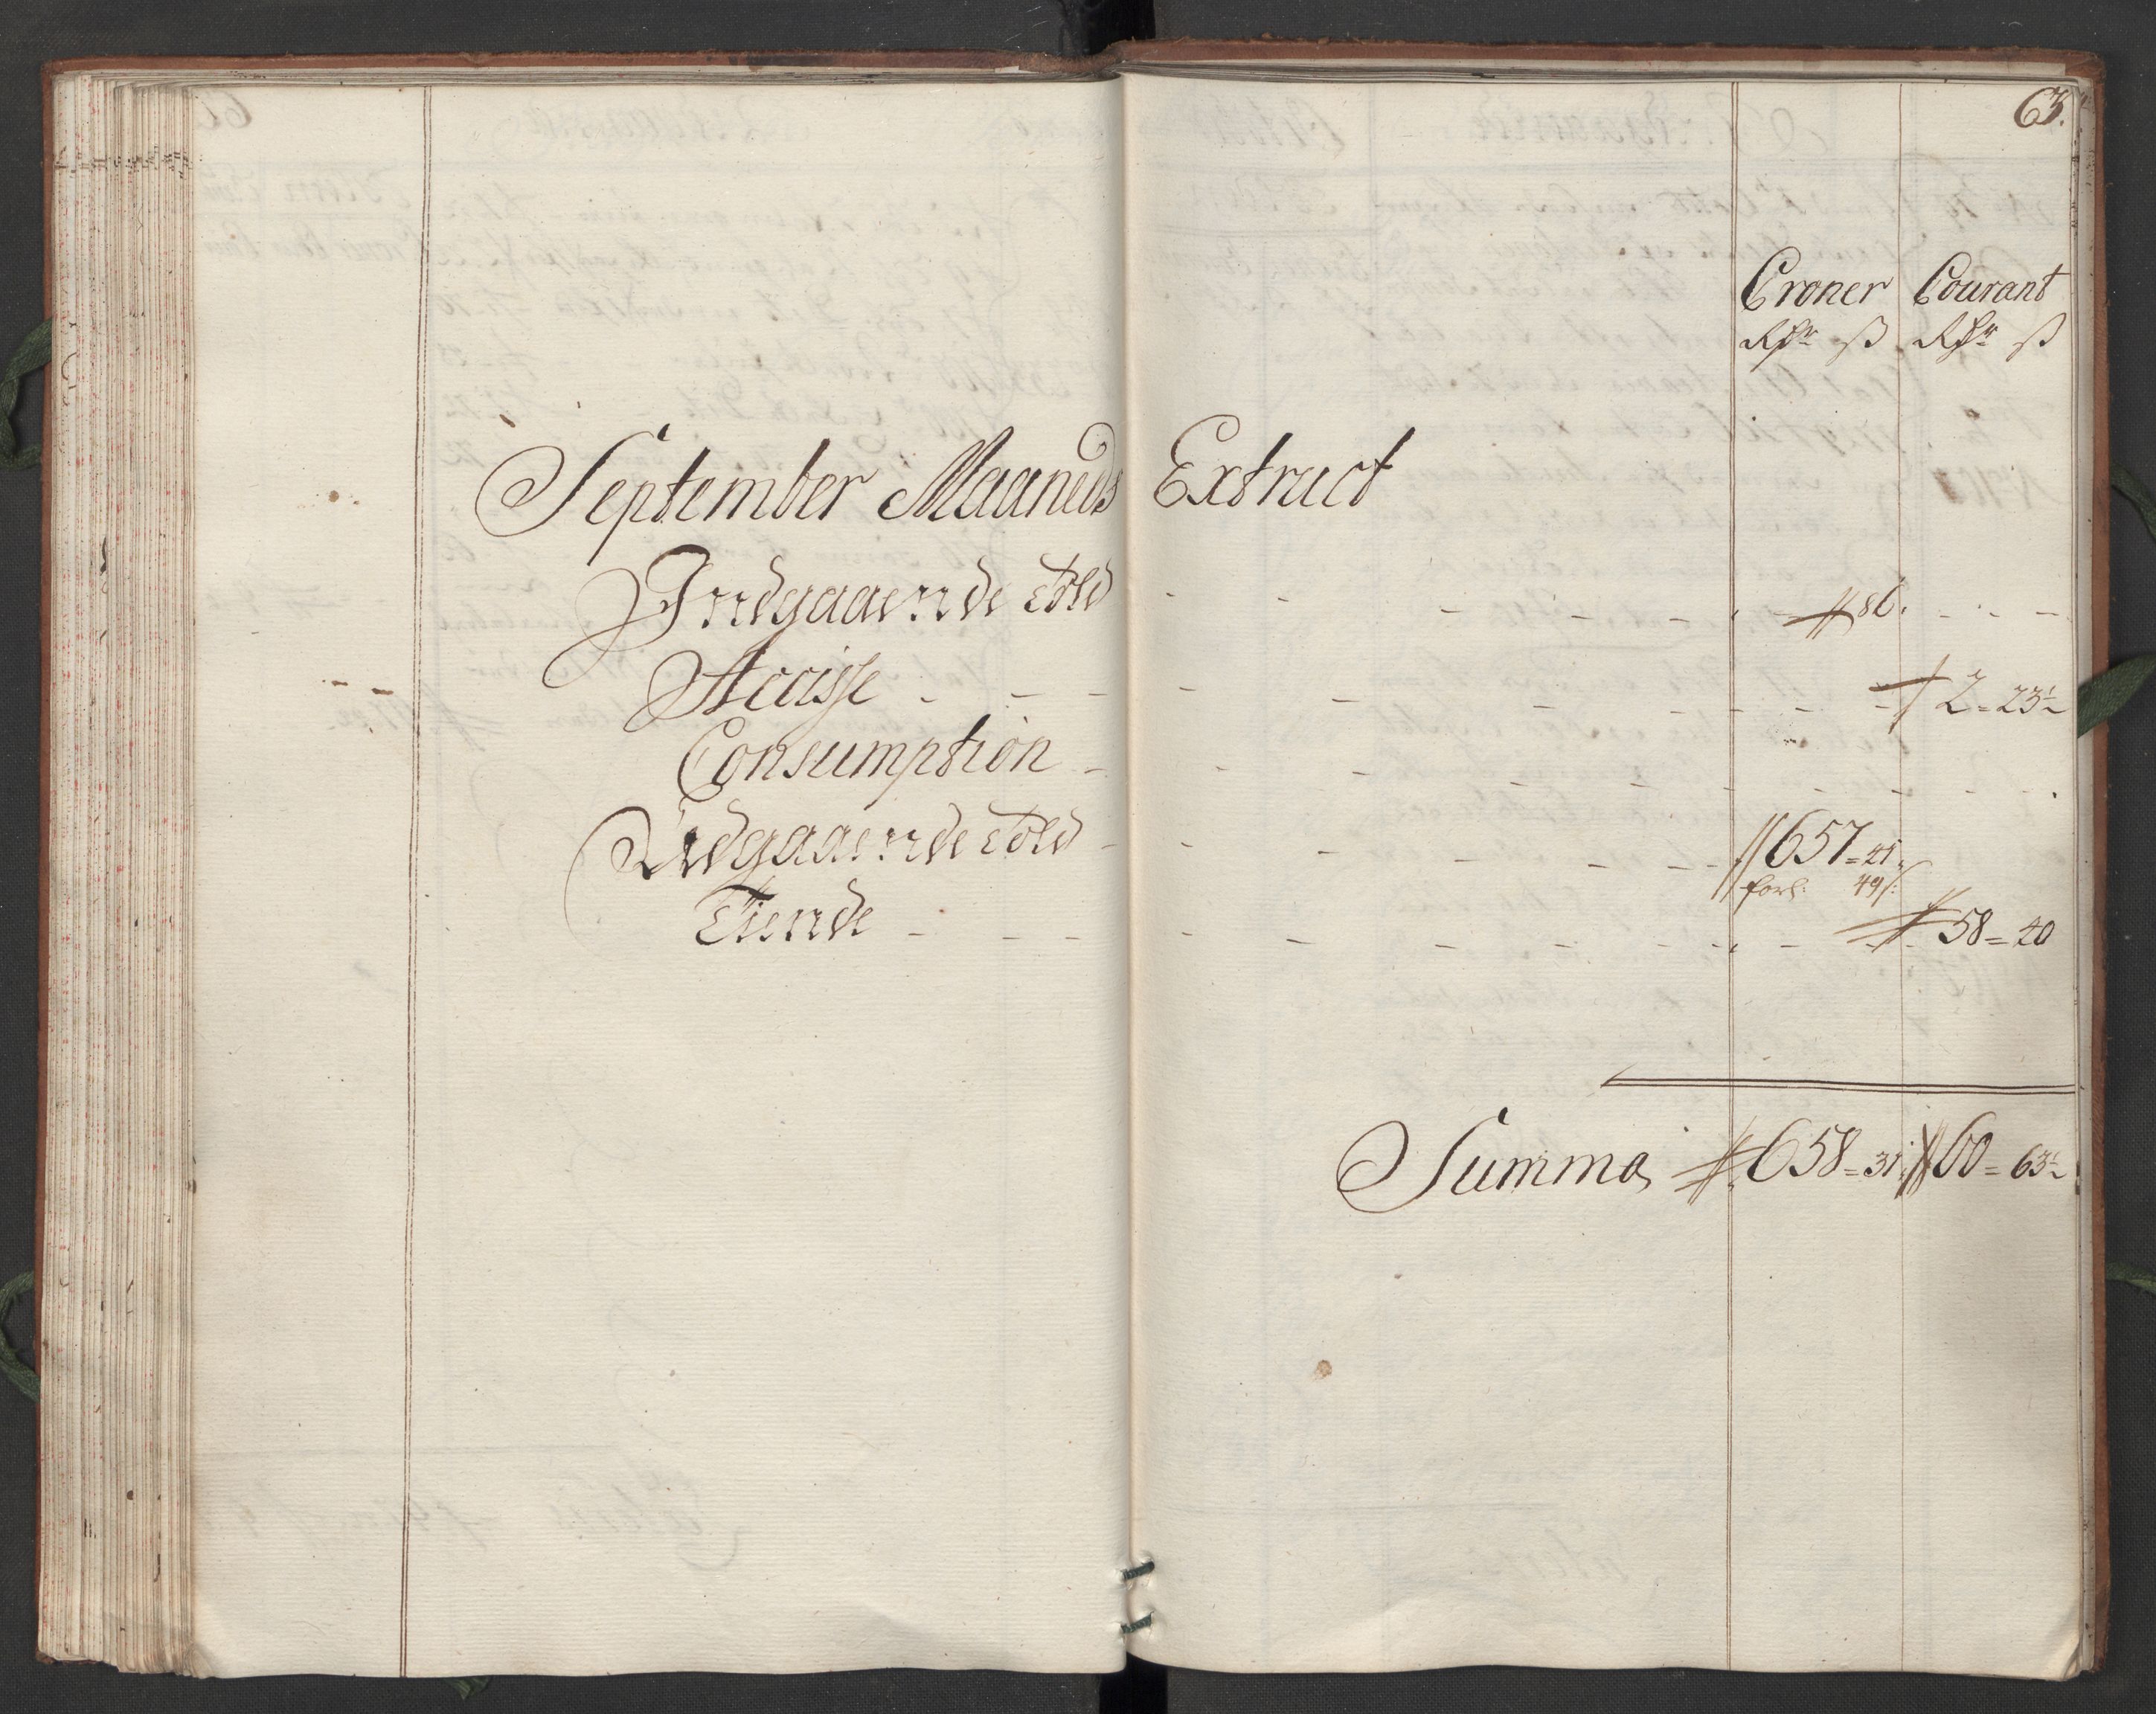 63.
Croner Courant
Rdr ß Rdr ß
September Maaneds Extract
Indgaaende Told - - - - - - - 86. - - -
Accisse - - - - - - - - - - 2 = 23½
Consumption - - - - - - - - - -
Udgaaende Told - - - - - - 657 = 41
forl: 49ß:
Tiende - - - - - - - - - - 58 = 40
Summa 658 = 31 60 = 63½